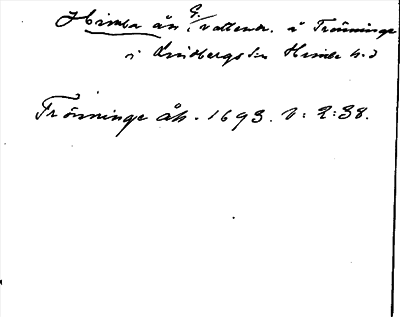 Himla ån G. / vattendr. i Trönninge
i Lindbergs sn Himle h-d
Trönninge åk. 1693. V: 2:38.